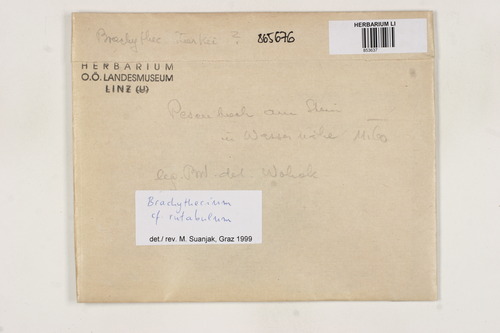 Brachythec ?
865676
HERBARIUM LI
HERBARIUM
O.Ö. LANDESMUSEUM
LINZ (U)
Pesenbach am
in Wassernähe
leg. det.
Brachythecium
cf rutabulum
det./ rev. M. Suanjak, Graz 1999